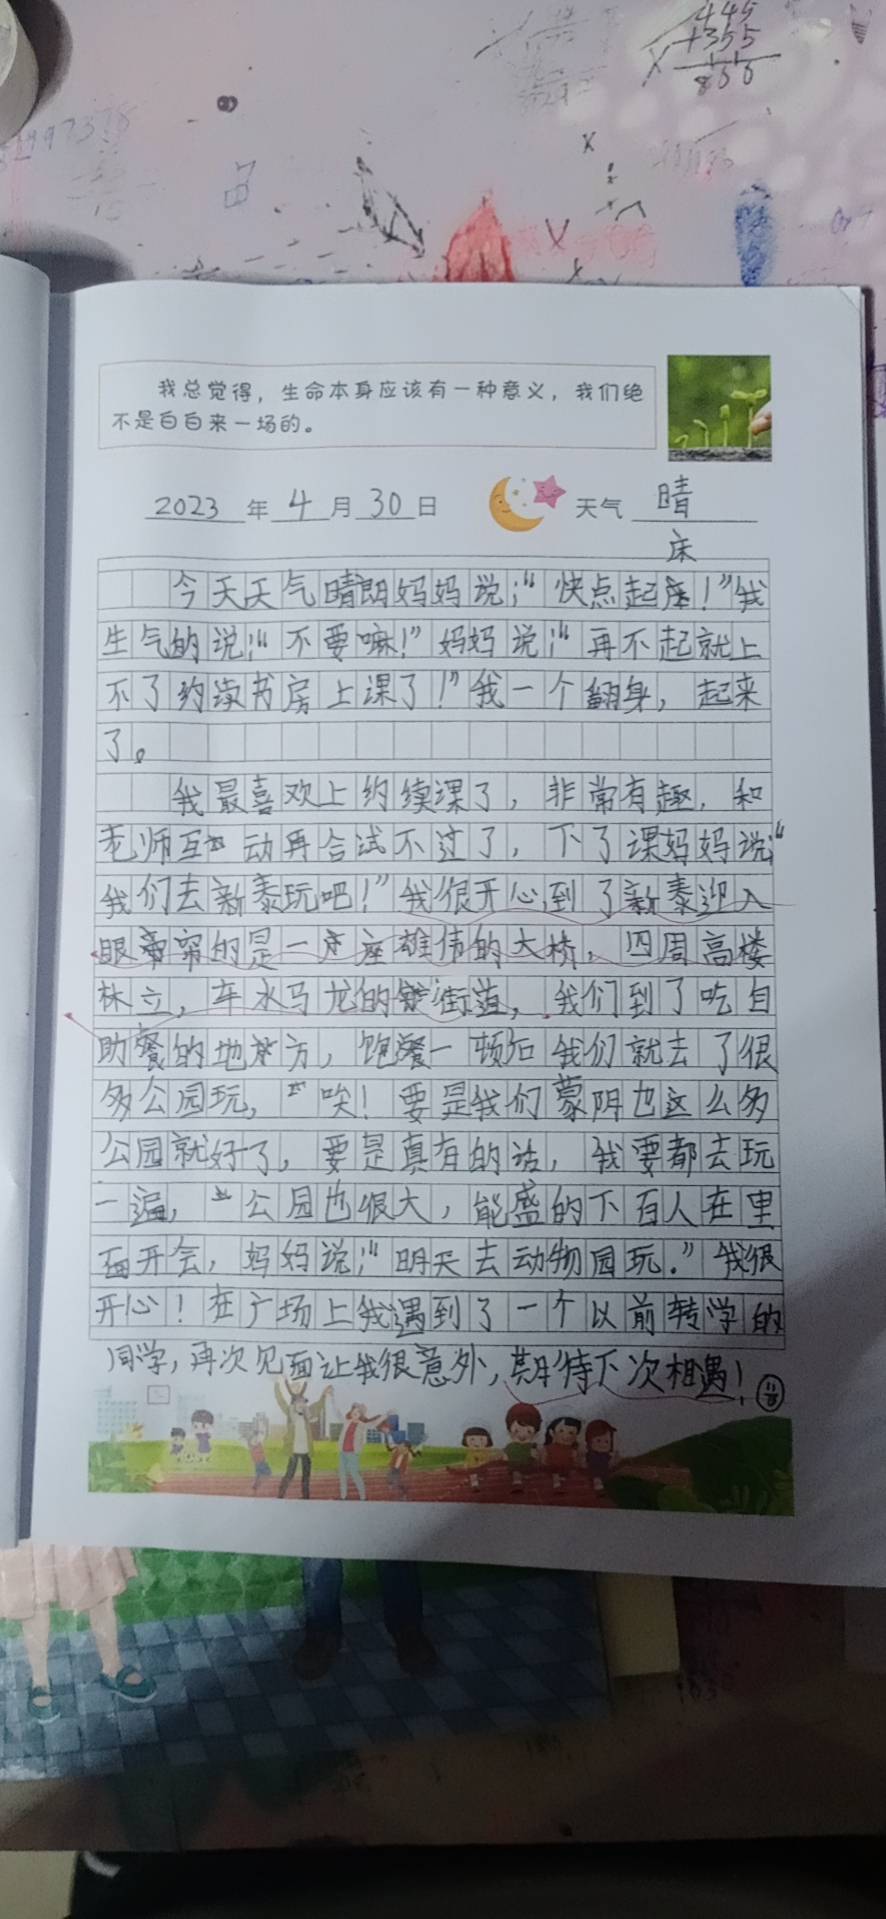 445
+355
800
我总觉得，生命本身应该有一种意义，我们绝
不是白白来一场的。
2023年4月30日 天气 晴
床
今天天气晴朗妈妈说；“快点起！”我
生气的说；“不要嘛！”妈妈说；“再不起就上
不了约读书房上课了！”我一个翻身，起来
了。
我最喜欢上约续课了，非常有趣，和
老师互动再合试不过了，下了课妈妈说；“
我们去新泰玩吧！”我很开心到了新泰迎入
眼帘的是一座雄伟的大桥，四周高楼
林立，车水马龙的街道，我们到了吃自
助餐的地方，饱餐一顿后我们就去了很
多公园玩，唉！要是我们蒙阴也这么多
公园就好了，要是真有的话，我要都去玩
一遍，公园也很大，能盛的下百人在里
面开会，妈妈说；“明天去动物园玩。”我很
开心！在广场上我遇到了一个以前转学的
同学，再次见面让我很意外，期待下次相遇！